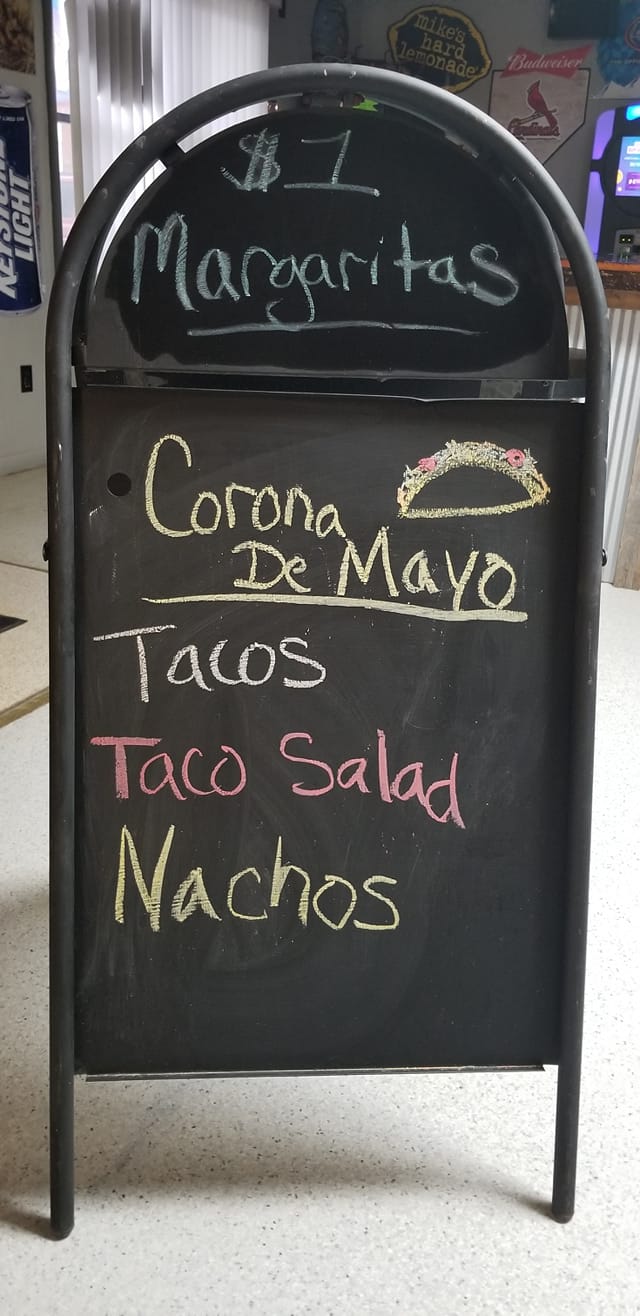 mike's
hard
lemonade
Budweiser
Cardinals
KEYSTONE
LIGHT
$1
Margaritas
Corona
De Mayo
Tacos
Taco Salad
Nachos